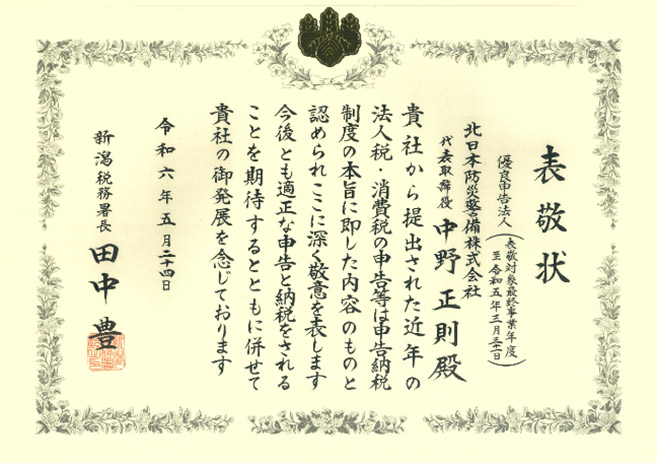 表敬状
優良申告法人
(表敬対象最終事業年度
至令和五年三月三十一日)
北日本防災警備株式会社
代表取締役 中野正則殿
貴社から提出された近年の
法人税・消費税の申告等は申告納税
制度の本旨に即した内容のものと
認められここに深く敬意を表します
今後とも適正な申告と納税をされる
ことを期待するとともに併せて
貴社の御発展を念じております
令和六年五月二十四日
新潟税務署長 田中豊